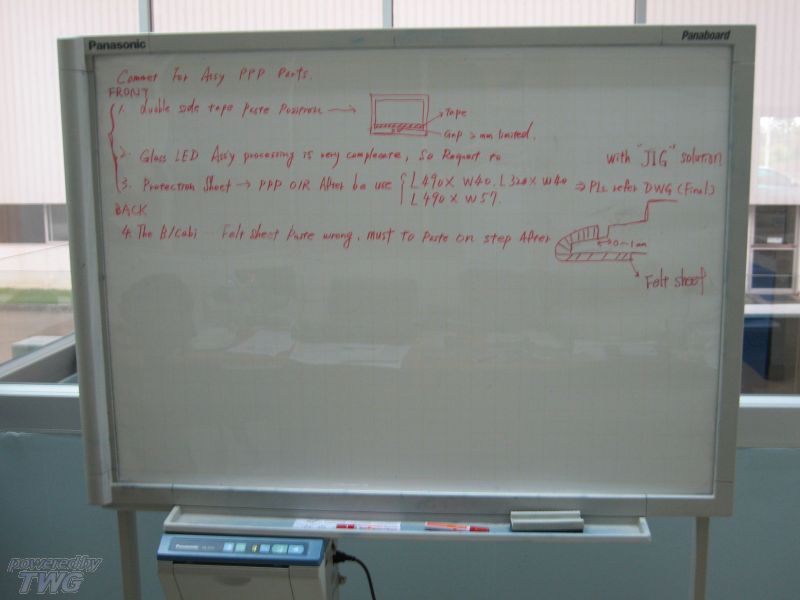 Panasonic
Panaboard
Commet For Assy PPP Parts.
FRONT
1. double side tape paste position →
Tape
Gap 2mm limited.
2. Glass LED Ass'y processing is very complecate, So Request to with "JIG" solution
3. Protection Sheet → PPP OIR After be use { L490 x W40, L320 x W40 ⇒ Pls refer DWG (Final)
L490 x W57.
BACK
4. The B/Cabi ... Felt sheet paste wrong, must to paste on step After
0~1mm
Felt sheet
Panasonic
powered by
TWG